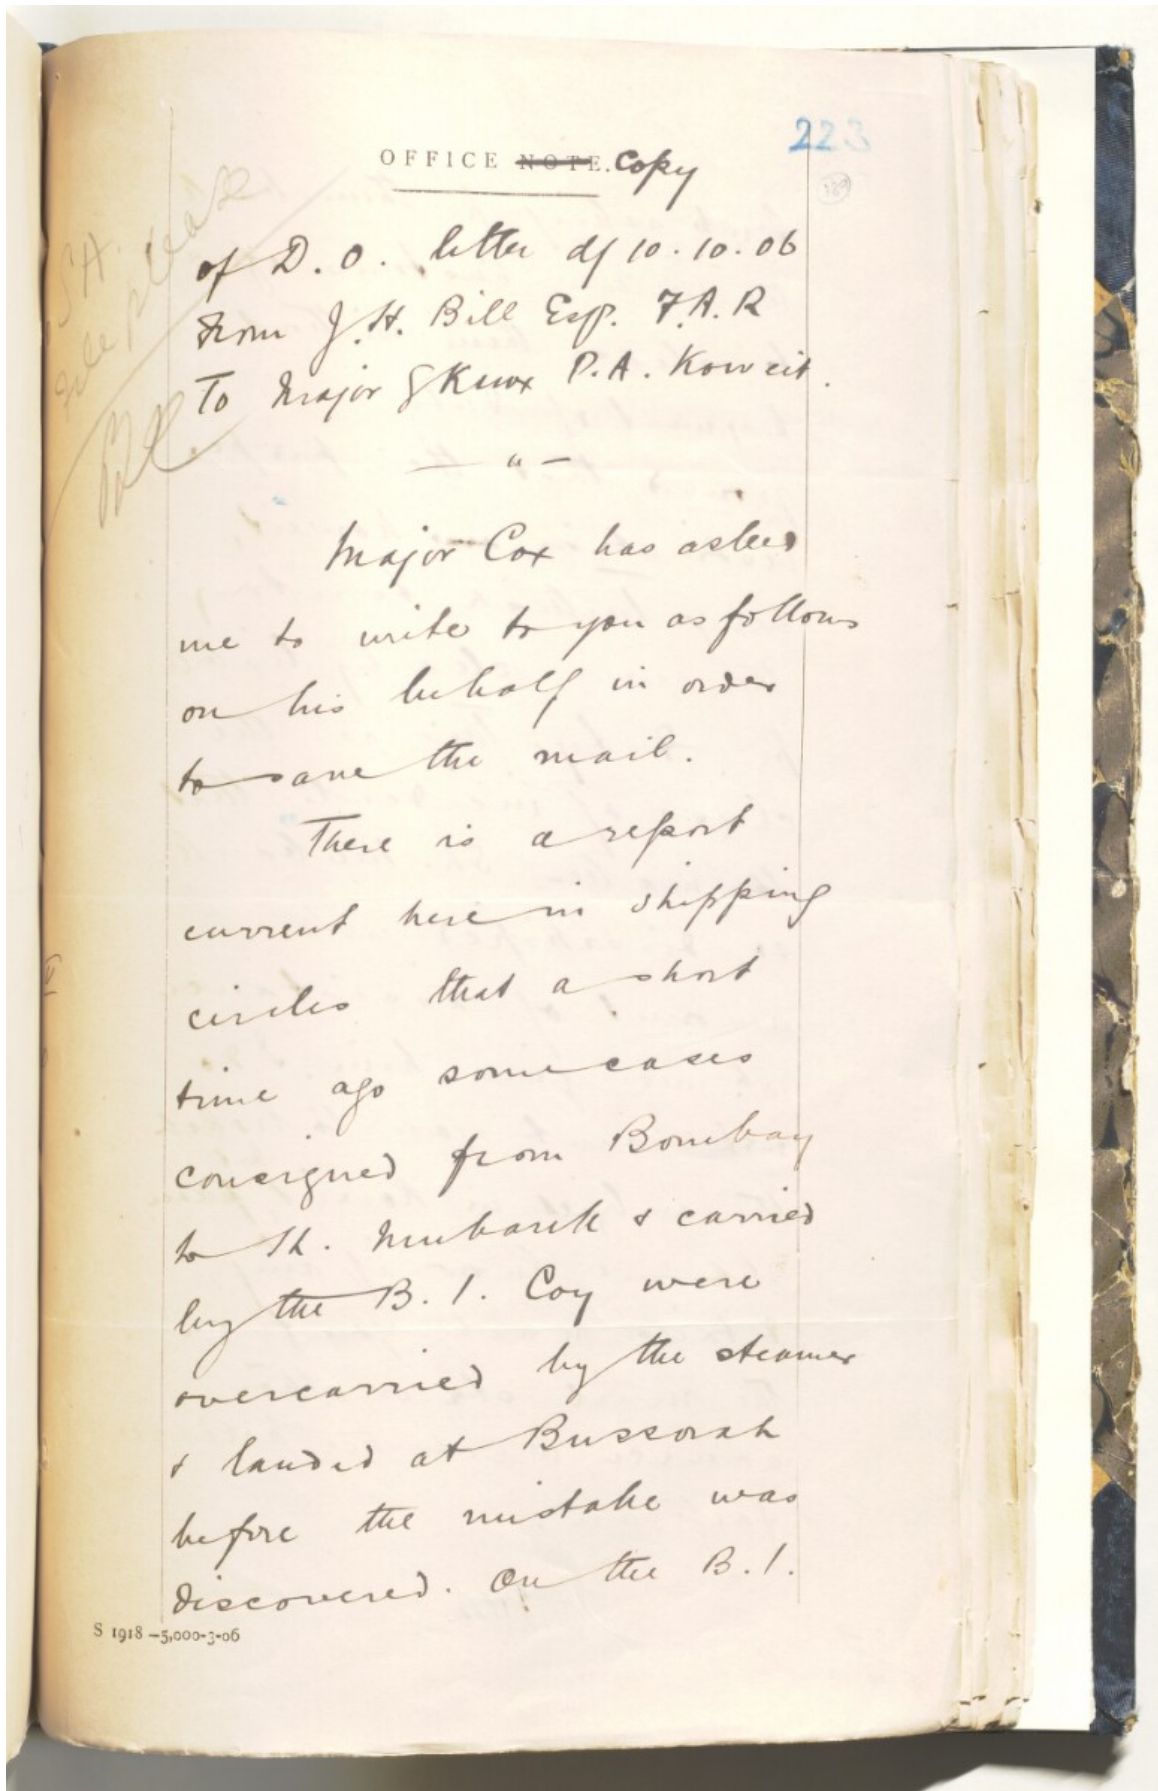 223
OFFICE NOTE. Copy
of D. O. letter d/ 10.10.06
From J. H. Bill Esq. F.A.R
To Major S Knox P.A. Koweit.
— " —
Major Cox has asked
me to write to you as follows
on his behalf in order
to save the mail.
There is a report
current here in shipping
circles that a short
time ago some cases
consigned from Bombay
to Sh. Mubarak & carried
by the B. I. Coy were
overcarried by the steamer
& landed at Bussorah
before the mistake was
discovered. On the B. I.
S 1918—5,000-3-06